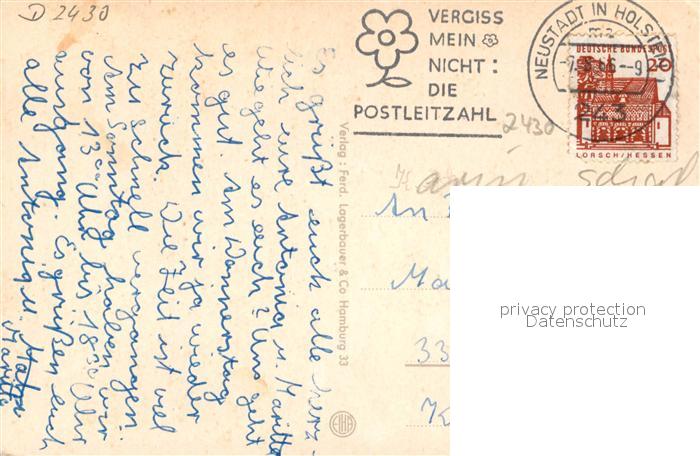 D 2430
VERGISS
MEIN
NICHT:
DIE
POSTLEITZAHL
NEUSTADT IN HOLST
-9
243
DEUTSCHE BUNDESPOST
20
LORSCH/HESSEN
2430
Es grüßt euch alle herz-
lich eure Antonia u. Maritta
Wie geht es euch? Uns geht
es gut. Am Donnerstag
kommen wir ja wieder
zurück. Die Zeit ist viel
zu schnell vergangen.
Am Sonntag haben wir
von 13 00 Uhr bis 18 30 Uhr
ausgang. Es grüßen euch
alle Antonia u.
Maritta
Verlag: Ferd. Lagerbauer & Co Hamburg 33
Karin
An
33
K
privacy protection
Datenschutz